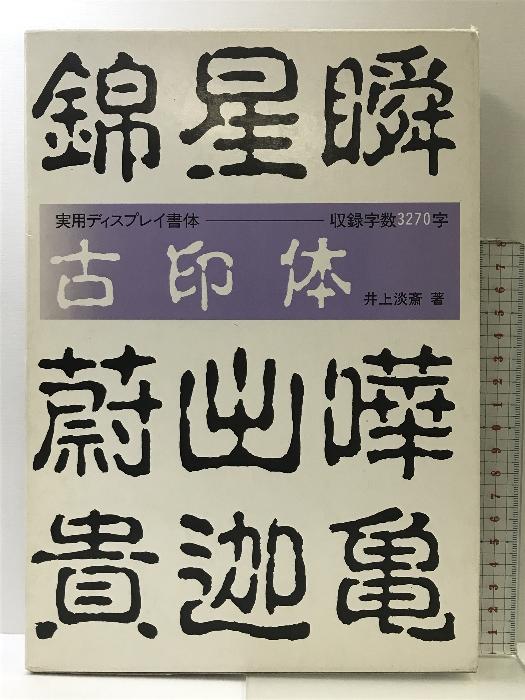 錦星瞬
実用ディスプレイ書体 収録字数3270字
古印体 井上淡斎 著
蔚出曄
貴迦亀